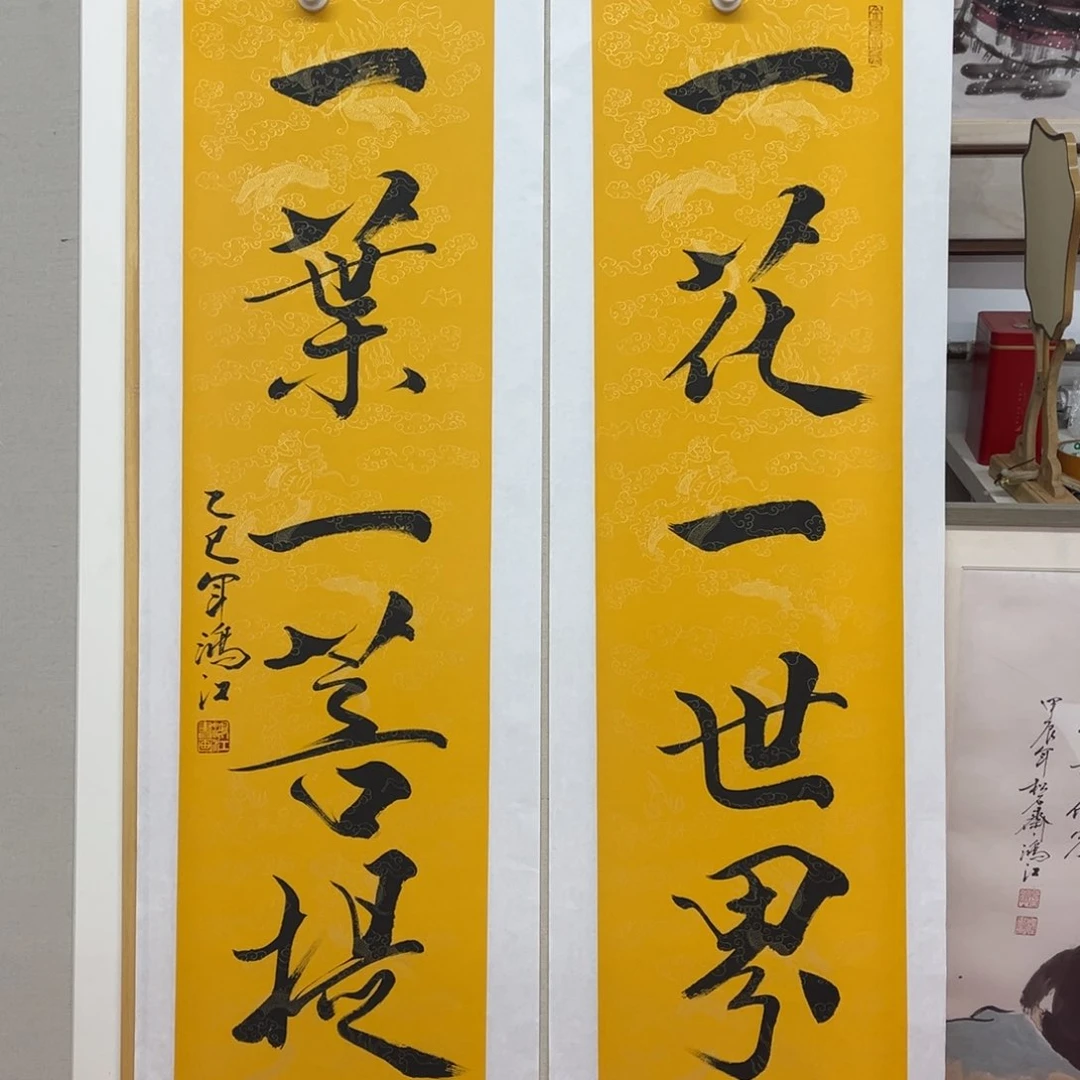 一花一世界
一葉一菩提
乙巳年鴻江
甲辰年松石齋鴻江